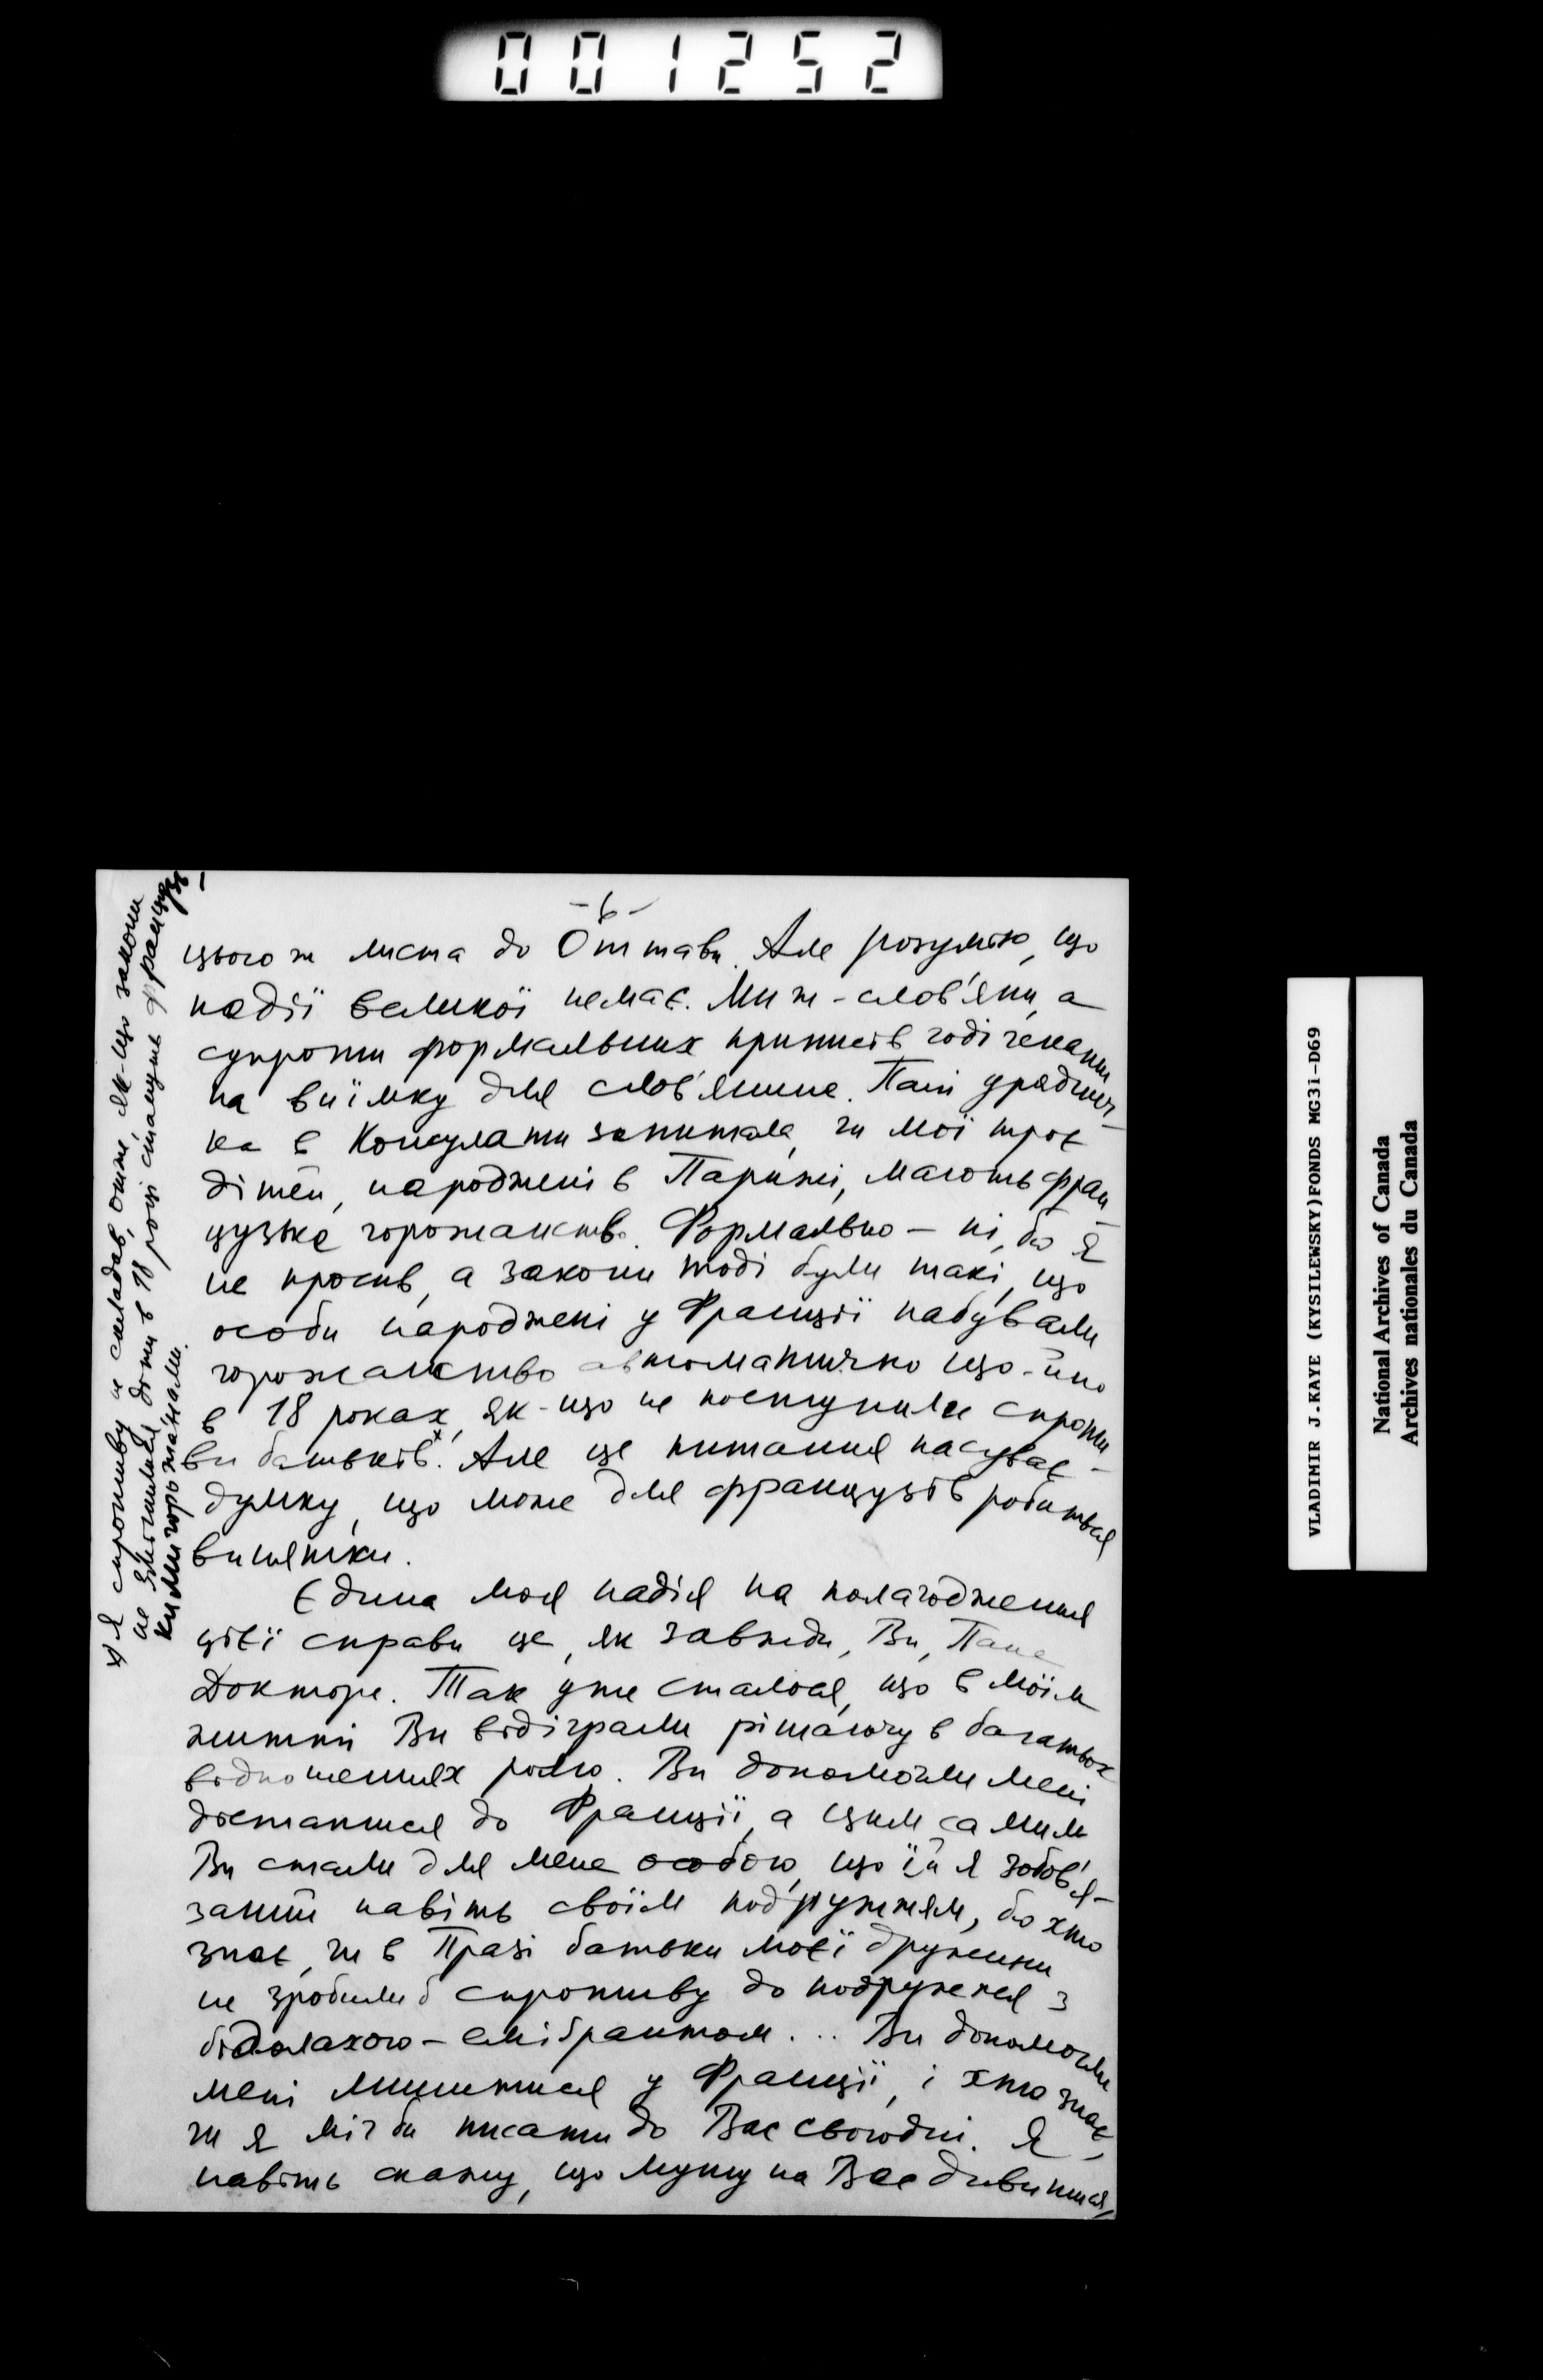 001252
-6-
цього ж листа до Оттави. Але розумію, що
надії великої немає. Ми ж - слов'яни, а
супроти формальних приписів годі чекати
на виїмку для слов'янина. Пані уряднич-
ка в Консуляти запитала, чи мої троє
дітей, народжені в Парижі, мають фран
цузьке горожанство. Формально - ні, бо я
не просив, а закони тоді були такі, що
особи народжені у Франції набували
горожанство автоматично що-йно
в 18 роках, як-що не поступили спроти
ви батьків.ˣ Але це питання насуває -
думку, що може для французів робиться
винятки.
Єдина моя надія на полагодження
цієї справи це, як завжди, Ви, Пане
Докторе. Так уже сталося, що в моїм
життю Ви відіграли рішаючу в багатьох
відношеннях ролю. Ви допомогли мені
дістатися до Франції, а цим самим
Ви стали для мене особою, що їй я зобов'я-
заний навіть своїм подружжям, бо хто
знає, чи в Празі батьки моєї дружини
не зробили б спротиву до подружжя з
бідолахою - емігрантом... Ви допомогли
мені лишитися у Франції, і хто знає,
чи я міг би писати до Вас сьогодні. Я
навіть скажу, що мушу на Вас дивитися,
x) Я спротиву не складав, отже, як-що закони
не змінилися, діти в 18 році стануть французь
кими горожанами.
VLADIMIR J.KAYE (KYSILEWSKY)FONDS MG31-D69
National Archives of Canada
Archives nationales du Canada